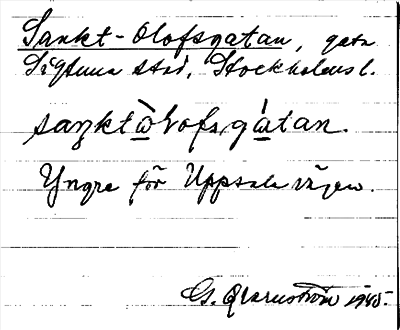 Sankt-Olofsgatan, gata
Sigtuna stad, Stockholms l.
saŋktὼlofsgὼtan.
Yngre för Uppsalavägen.
G. Qvarnström 1945.